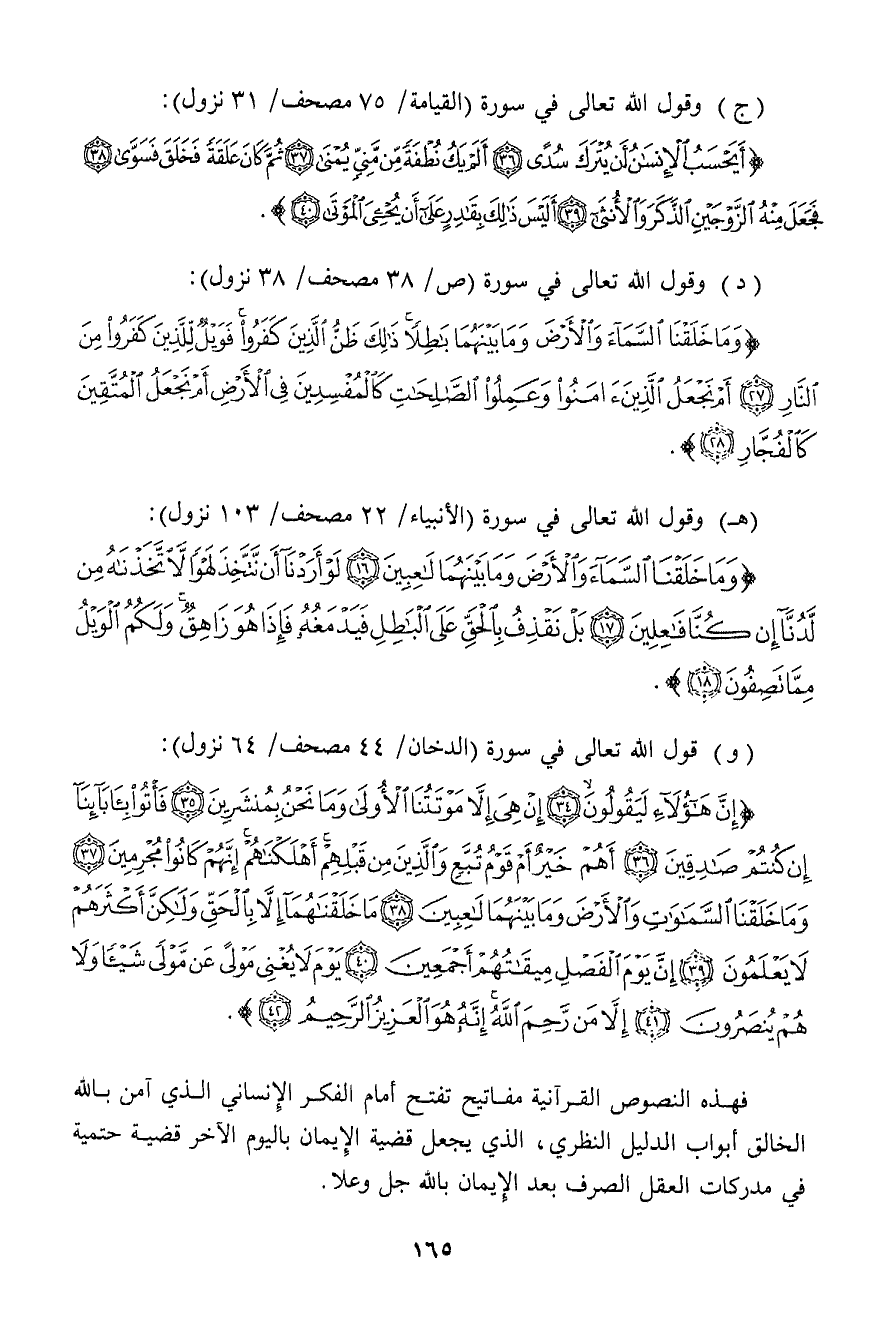 (ج) وقول الله تعالى في سورة (القيامة/ ٧٥ مصحف/ ٣١ نزول):
﴿أَيَحْسَبُ ٱلْإِنسَٰنُ أَن يُتْرَكَ سُدًى ٣٦ أَلَمْ يَكُ نُطْفَةً مِّن مَّنِىٍّ يُمْنَىٰ ٣٧ ثُمَّ كَانَ عَلَقَةً فَخَلَقَ فَسَوَّىٰ ٣٨
فَجَعَلَ مِنْهُ ٱلزَّوْجَيْنِ ٱلذَّكَرَ وَٱلْأُنثَىٰٓ ٣٩ أَلَيْسَ ذَٰلِكَ بِقَٰدِرٍ عَلَىٰٓ أَن يُحْۦِىَ ٱلْمَوْتَىٰ ٤٠﴾.
(د) وقول الله تعالى في سورة (ص/ ٣٨ مصحف/ ٣٨ نزول):
﴿وَمَا خَلَقْنَا ٱلسَّمَآءَ وَٱلْأَرْضَ وَمَا بَيْنَهُمَا بَٰطِلًا ۚ ذَٰلِكَ ظَنُّ ٱلَّذِينَ كَفَرُوا۟ ۚ فَوَيْلٌ لِّلَّذِينَ كَفَرُوا۟ مِنَ
ٱلنَّارِ ٢٧ أَمْ نَجْعَلُ ٱلَّذِينَ ءَامَنُوا۟ وَعَمِلُوا۟ ٱلصَّٰلِحَٰتِ كَٱلْمُفْسِدِينَ فِى ٱلْأَرْضِ أَمْ نَجْعَلُ ٱلْمُتَّقِينَ
كَٱلْفُجَّارِ ٢٨﴾.
(هـ) وقول الله تعالى في سورة (الأنبياء/ ٢٢ مصحف/ ١٠٣ نزول):
﴿وَمَا خَلَقْنَا ٱلسَّمَآءَ وَٱلْأَرْضَ وَمَا بَيْنَهُمَا لَٰعِبِينَ ١٦ لَوْ أَرَدْنَآ أَن نَّتَّخِذَ لَهْوًا لَّٱتَّخَذْنَٰهُ مِن
لَّدُنَّآ إِن كُنَّا فَٰعِلِينَ ١٧ بَلْ نَقْذِفُ بِٱلْحَقِّ عَلَى ٱلْبَٰطِلِ فَيَدْمَغُهُۥ فَإِذَا هُوَ زَاهِقٌ ۚ وَلَكُمُ ٱلْوَيْلُ
مِمَّا تَصِفُونَ ١٨﴾.
(و) قول الله تعالى في سورة (الدخان/ ٤٤ مصحف/ ٦٤ نزول):
﴿إِنَّ هَٰٓؤُلَآءِ لَيَقُولُونَ ۙ ٣٤ إِنْ هِىَ إِلَّا مَوْتَتُنَا ٱلْأُولَىٰ وَمَا نَحْنُ بِمُنشَرِينَ ٣٥ فَأْتُوا۟ بِـَٔابَآئِنَآ
إِن كُنتُمْ صَٰدِقِينَ ٣٦ أَهُمْ خَيْرٌ أَمْ قَوْمُ تُبَّعٍ وَٱلَّذِينَ مِن قَبْلِهِمْ ۚ أَهْلَكْنَٰهُمْ ۖ إِنَّهُمْ كَانُوا۟ مُجْرِمِينَ ٣٧
وَمَا خَلَقْنَا ٱلسَّمَٰوَٰتِ وَٱلْأَرْضَ وَمَا بَيْنَهُمَا لَٰعِبِينَ ٣٨ مَا خَلَقْنَٰهُمَآ إِلَّا بِٱلْحَقِّ وَلَٰكِنَّ أَكْثَرَهُمْ
لَا يَعْلَمُونَ ٣٩ إِنَّ يَوْمَ ٱلْفَصْلِ مِيقَٰتُهُمْ أَجْمَعِينَ ٤٠ يَوْمَ لَا يُغْنِى مَوْلًى عَن مَّوْلًى شَيْـًٔا وَلَا
هُمْ يُنصَرُونَ ٤١ إِلَّا مَن رَّحِمَ ٱللَّهُ ۚ إِنَّهُۥ هُوَ ٱلْعَزِيزُ ٱلرَّحِيمُ ٤٢﴾.
فهذه النصوص القرآنية مفاتيح تفتح أمام الفكر الإنساني الذي آمن بالله
الخالق أبواب الدليل النظري، الذي يجعل قضية الإيمان باليوم الآخر قضية حتمية
في مدركات العقل الصرف بعد الإيمان بالله جل وعلا.
١٦٥